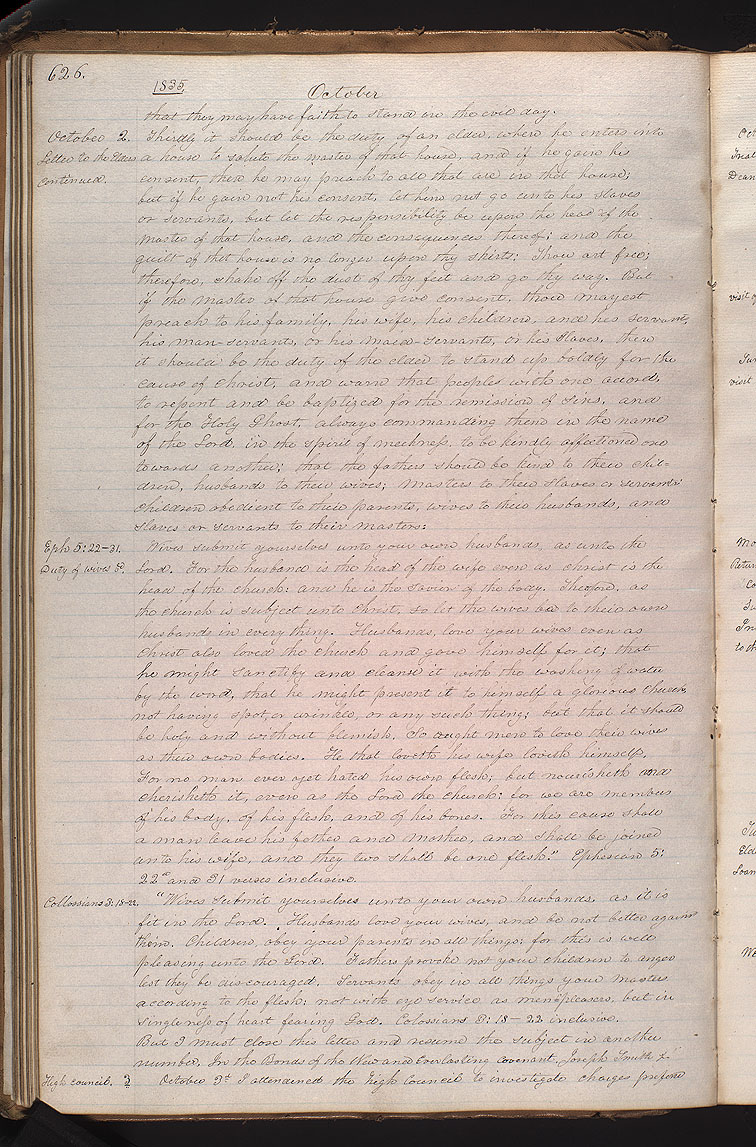 626.
1835
October
that they may have faith to stand in the evil day.
October 2. Thirdly it should be the duty of an elder, when he enters into
Letter to the Elders a house to salute the master of that house, and if he gain his
continued. consent, then he may preach to all that are in that house;
but if he gain not his consent, let him not go unto his slaves
or servants, but let the responsibility be upon the head of the
master of that house, and the consequences thereof; and the
guilt of that house is no longer upon thy skirts: Thou art free;
therefore, shake off the dust of thy feet and go thy way. But
if the master of that house give consent, thou mayest
preach to his family, his wife, his children, and his servants,
his man-servants, or his maid-servants, or his slaves, then
it should be the duty of the elder to stand up boldly for the
cause of Christ, and warn that people with one accord,
to repent and be baptized for the remission of sins, and
for the Holy Ghost, always commanding them in the name
of the Lord, in the spirit of meekness, to be kindly affectioned one
towards another; that the fathers should be kind to their chil-
dren, husbands to their wives; Masters to their slaves or servants;
children obedient to their parents, wives to their husbands, and
slaves or servants to their masters:
Eph 5:22-31. Wives submit yourselves unto your own husbands, as unto the
Duty of wives &c. Lord. For the husband is the head of the wife even as Christ is the
head of the church: and he is the Savior of the body. Therefore, as
the church is subject unto Christ, so let the wives be to their own
husband in every thing. Husbands, love your wives even as
Christ also loved the church and gave himself for it; that
he might sanctify and cleanse it with the washing of water
by the word, that he might present it to himself a glorious church,
not having spot, or wrinkle, or any such thing; but that it should
be holy and without blemish. So ought men to love their wives
as their own bodies. He that loveth his wife loveth himself.
For no man ever yet hated his own flesh; but nourisheth and
cherisheth it, even as the Lord the church: for we are members
of his body, of his flesh, and of his bones. For this cause shall
a man leave his father and mother, and shall be joined
unto his wife, and they two shall be one flesh." Ephesian 5:
22nd and 31 verses inclusive.
Collossians 3:18-22. "Wives submit yourselves unto your own husbands, as it is
fit in the Lord. Husbands love your wives, and be not bitter against
them. Children, obey your parents in all things: for this is well
pleasing unto the Lord. Fathers provoke not your children to anger
lest they be discouraged. Servants obey in all things your masters
according to the flesh: not with eye service as men pleasers, but in
singleness of heart fearing God. Colossians 3:18-22 inclusive.
But I must close this letter and resume the subject in another
number. In the Bonds of the New and Everlasting covenant, Joseph Smith Jr
High council. 3 October 3d I attendned the high council to investigate charges prefered
Oct
visit
visit